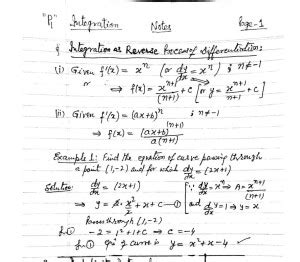 "P1" Integration Notes Page-1
Integration as Reverse Process of Differentiation:
(i) Given f'(x) = x^n (or dy/dx = x^n) ; n ≠ -1
⇒ f(x) = x^(n+1)/(n+1) + c [or y = x^(n+1)/(n+1) + c]
(ii) Given f'(x) = (ax+b)^n ; n ≠ -1
⇒ f(x) = (ax+b)^(n+1)/a(n+1)
Example 1: Find the equation of curve passing through
a point (1,-2) and for which dy/dx = (2x+1)
Solution: dy/dx = (2x+1) [∵ dy/dx = x^n ⇒ y = x^(n+1)/(n+1)
⇒ y = 2·x²/2 + x + c —① and dy/dx = 1 ⇒ y = x
Passes through (1,-2)
-2 = 1² + 1 + c ⇒ c = -4
① curve is y = x² + x - 4